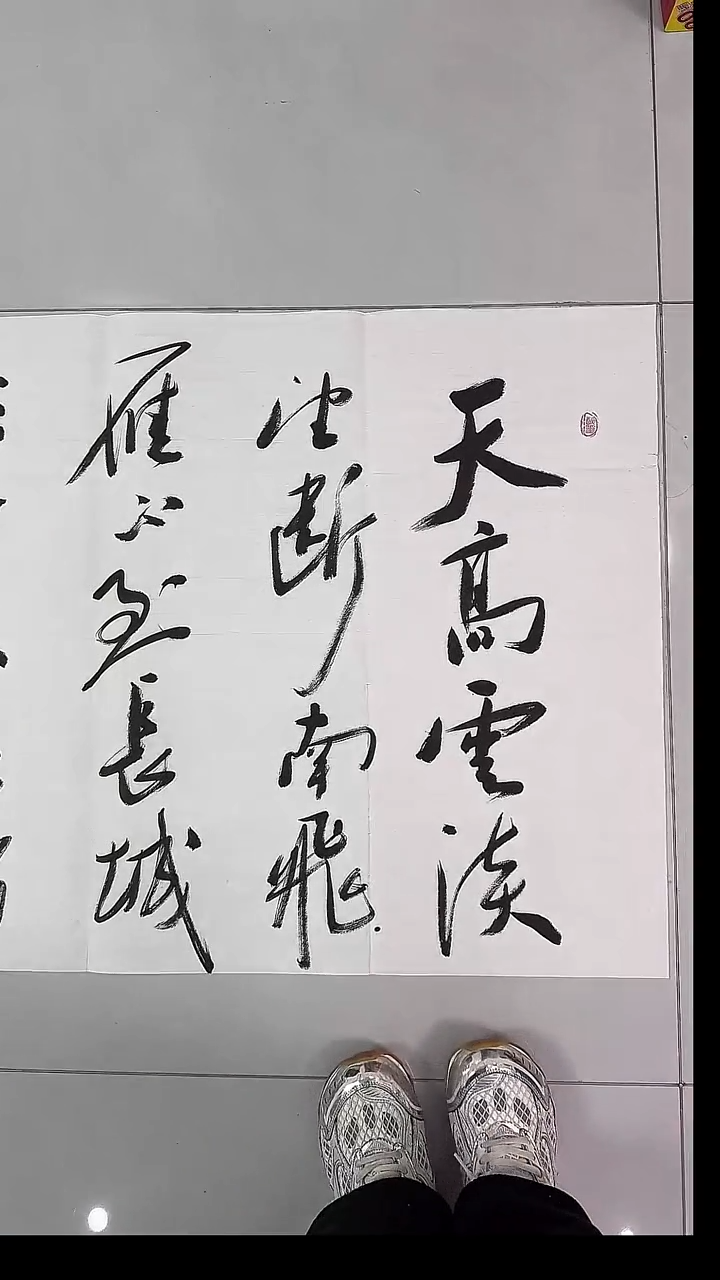 天高雲淡
望斷南飛
雁不到長城